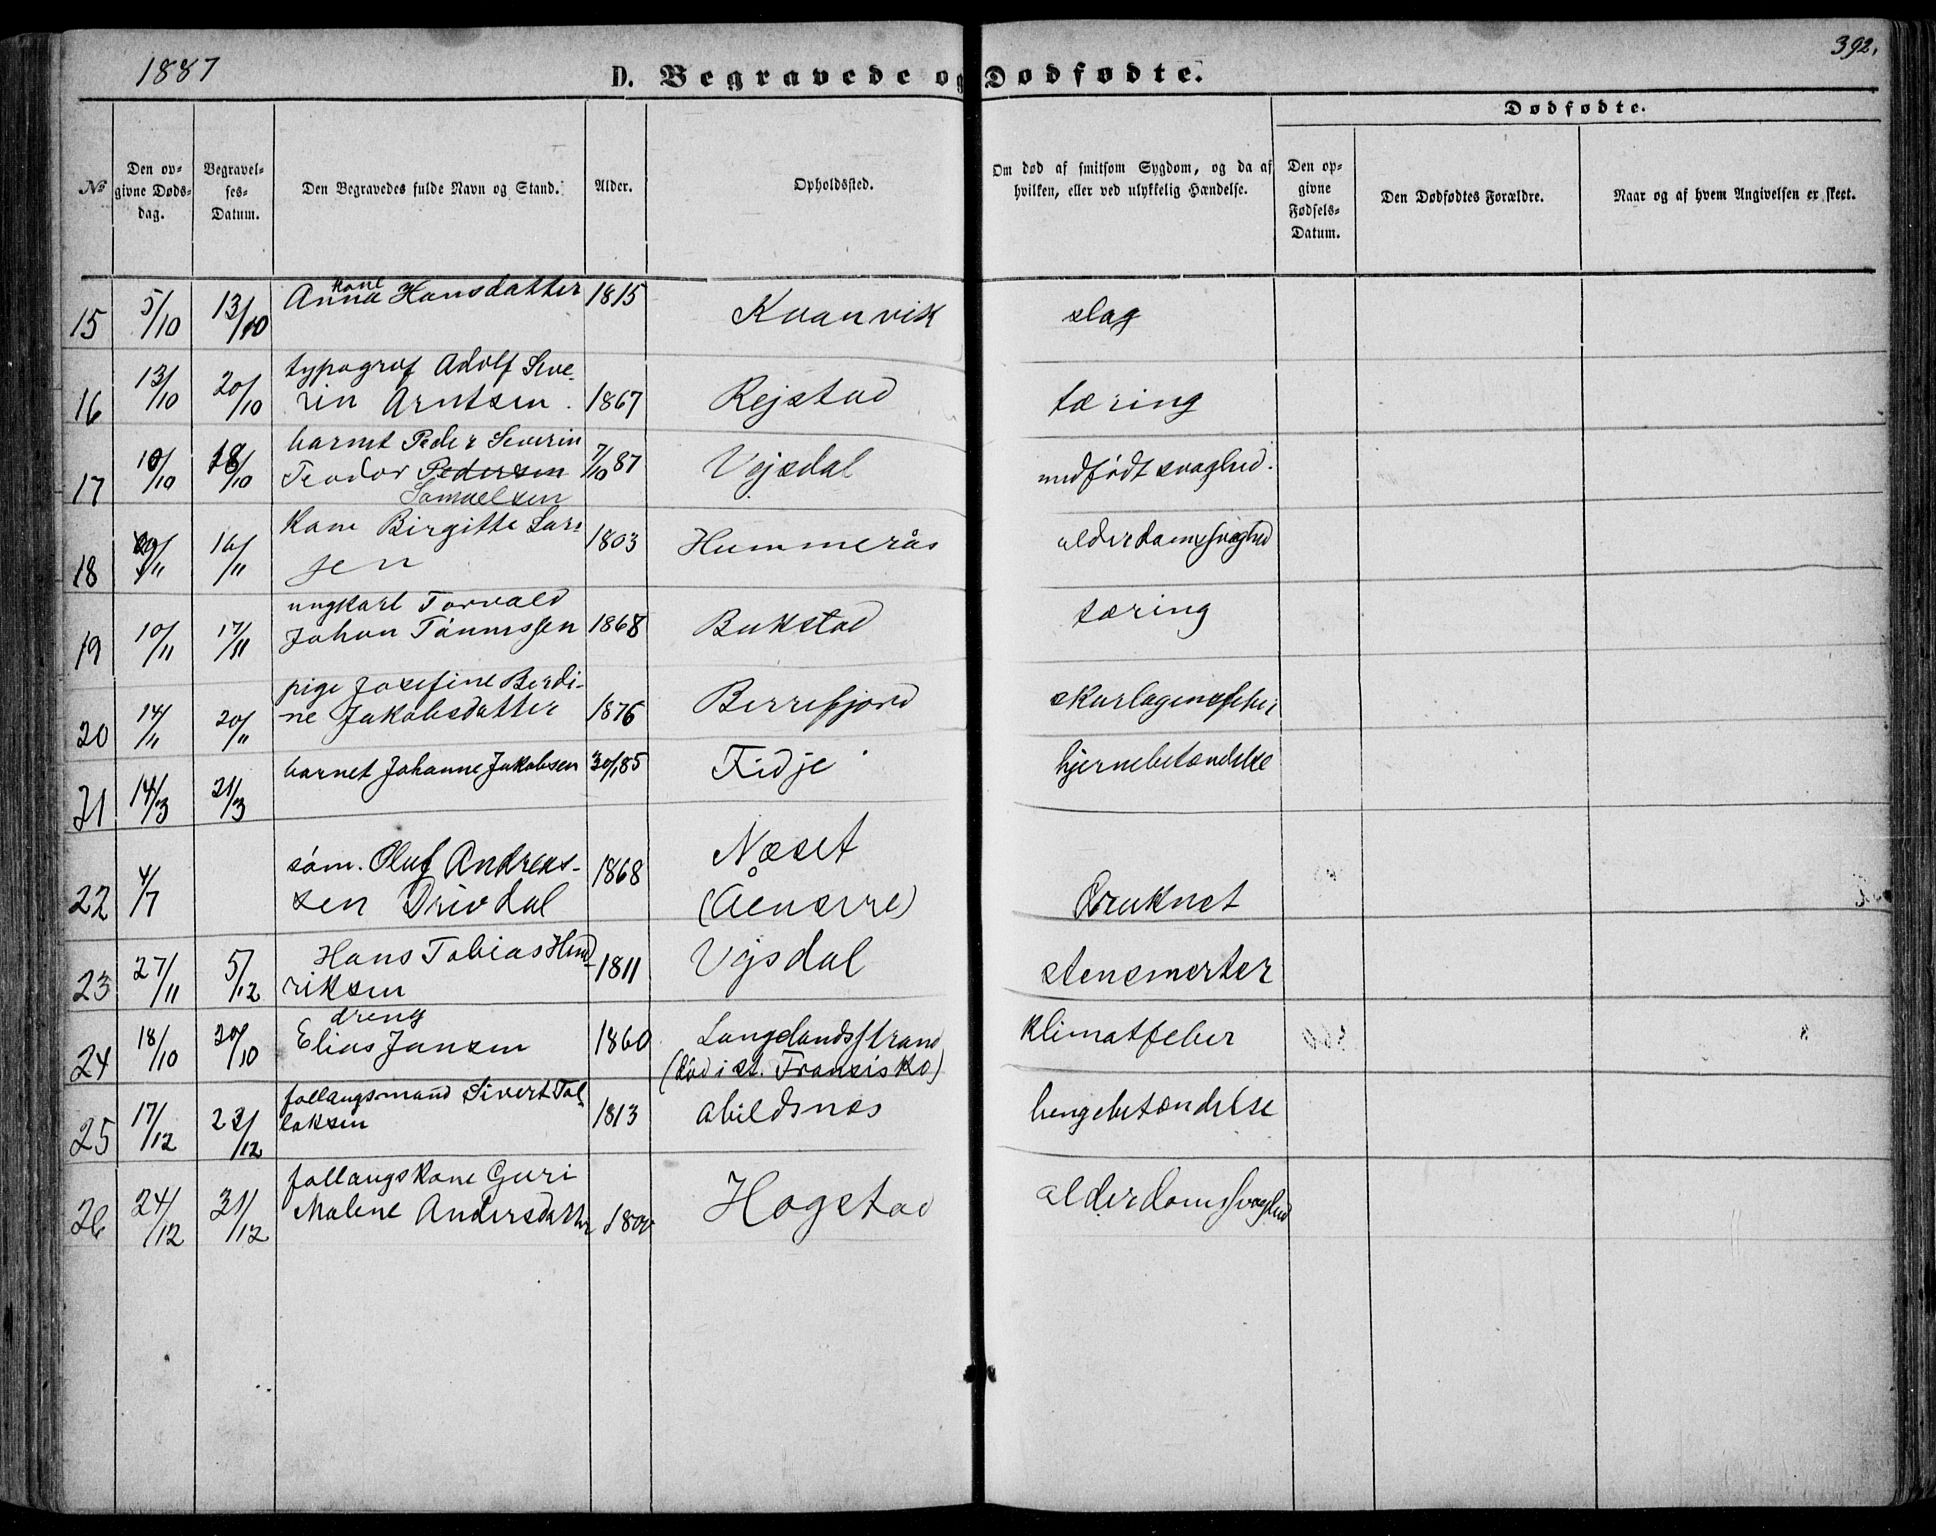 1887
392.
D. Begravede og Dødfødte.
Dødfødte.
No
Den op-
givne Døds-
dag.
Begravel-
ses-
Datum.
Den Begravedes fulde Navn og Stand.
Alder.
Opholdssted.
Om død af smitsom Sygdom, og da af
hvilken, eller ved ulykkelig Hændelse.
Den op-
givne
Fødsels-
Datum.
Den Dødfødtes Forældre.
Naar og af hvem Angivelsen er skeet.
kone
15 5/10 13/10 Anna Hansdatter 1815 Kvanvik slag
typograf Adolf Seve-
16 13/10 20/10 rin Arntsen. 1867 Rejstad tæring
barnet Peder Severin
17 10/10 18/10 Teodor Pedersen 7/10 87 Vejsdal medfødt svaghed.
Samuelsen
kone Birgitte Lar-
18 /11 16/11 sen 1803 Hummerås alderdomssvaghed
ungkarl Torvald
19 10/11 17/11 Johan Tønnessen 1868 Bukstad tæring
pige Josefine Berdi-
20 14/11 20/11 ne Jakobsdatter 1876 Berrefjord skarlagensfeber
21 14/3 21/3 barnet Johanne Jakobsen 30/1 85 Fidje hjernebetændelse
søm. Oluf Andreas-
22 4/7 sen Drivdal 1868 Næset
(Åensire) Druknet
Hans Tobias Hend-
23 27/11 5/12 riksen 1811 Vejsdal stensmerter
dreng
24 18/10 20/10 Elias Jansen 1860 Langelandsstrand klimatfeber
(død i st. Fransisko)
follaugsmand Sivert Tol-
25 17/12 23/12 laksen 1813 Abildsnes lungebetændelse
follaugskone Guri
26 24/12 31/12 Malene Andersdatter 1800 Hogstad alderdomssvaghed